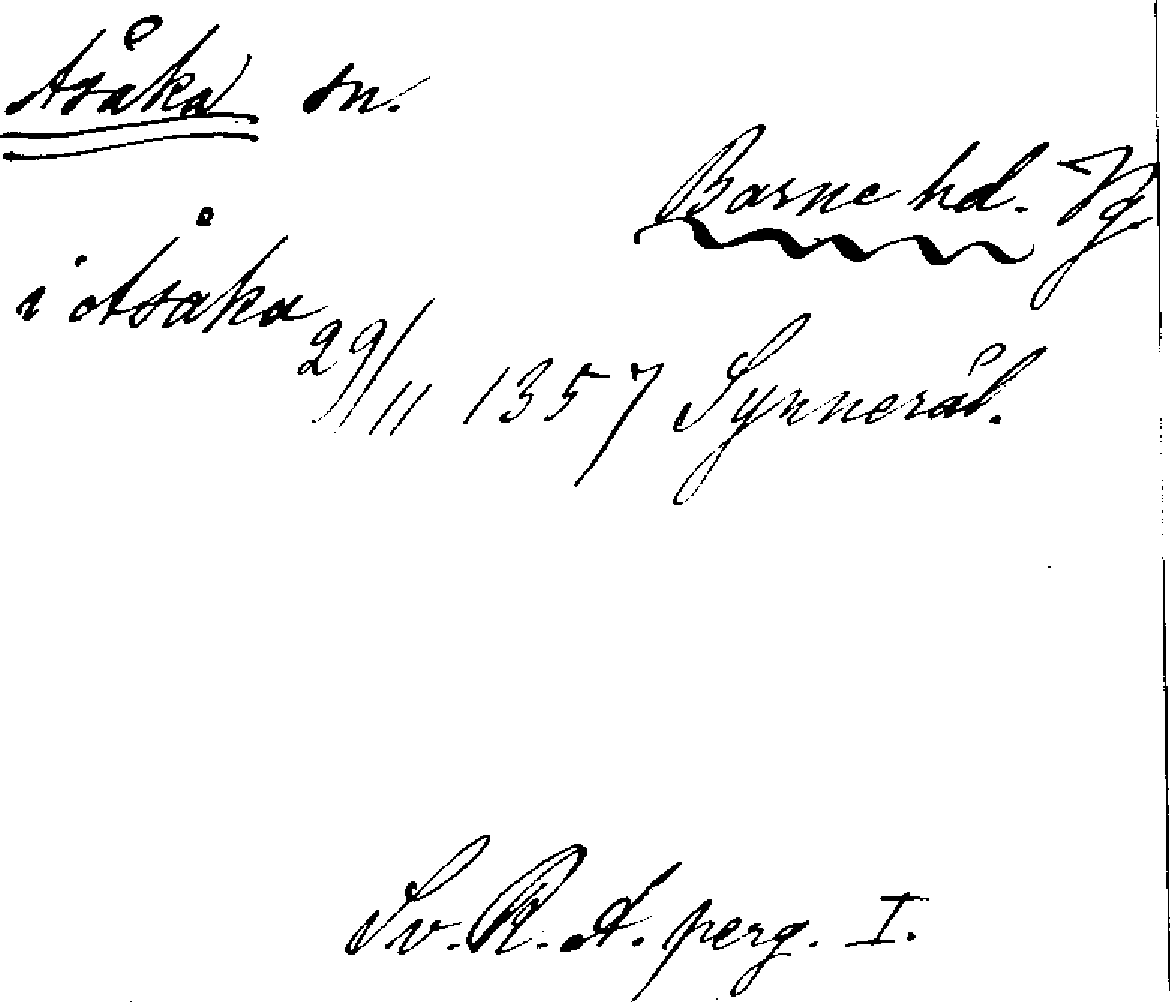 Asåka sn.
Barne hd. Vg
i Asåka
29/11 1357 Synnerål.
Sv. R. A. perg. I.